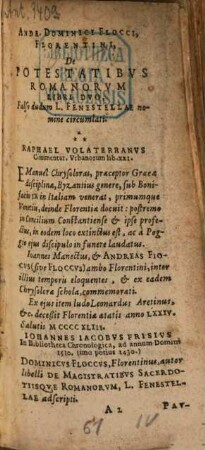 Ant. 1403
ANDR. DOMINICI FLOCCI,
FLORENTINI,
De
POTESTATIBVS
ROMANORVM
LIBRI DVO,
Falso dudum L. FENESTELLAE no-
mine circumlati.
RAPHAEL VOLATERRANUS
Commentar. Vrbanorum lib. XXI.
EManuel Chrysoloras, præceptor Græcæ
disciplinæ, Byzantius genere, sub Boni-
facio IX in Italiam venerat, primumque
Venetiis, deinde Florentiæ docuit: postremo
in concilium Constantiense & ipse profe-
ctus, in eodem loco extinctus est, ac à Pog-
gio ejus discipulo in funere laudatus.
Ioannes Manectus, & ANDREAS FIOC-
CUS (sive FLOCCVS) ambo Florentini, inter
illius temporis eloquentes, & ex eadem
Chrysoloræ schola, commemorati.
Ex ejus item ludo Leonardus Aretinus,
&c. decessit Florentiæ ætatis anno LXXIV.
Salutis MCCCCXLIII.
IOHANNES IACOBUS FRISIUS
In Bibliotheca Chronologica, ad annum Domini
1510. (imo potius 1430.)
DOMINICVS FLOCCVS, Florentinus, autor
libelli DE MAGISTRATIBVS SACERDO-
TIISQVE ROMANORVM, L. FENESTEL-
LAE adscripti.
A2
PAV-